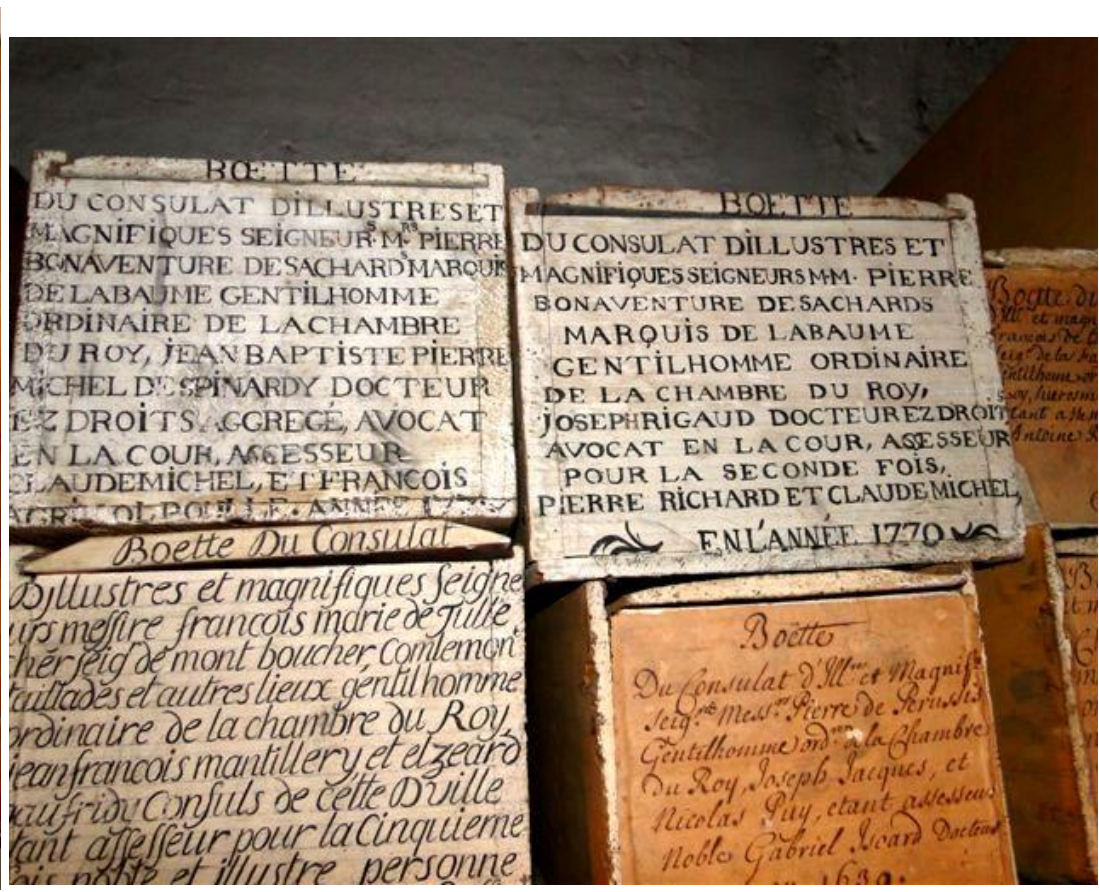 BŒTTE
DU CONSULAT DILLUSTRES ET
MAGNIFIQUES SEIGNEURS MRS PIERRE
BONAVENTURE DE SACHARDS MARQUIS
DE LABAUME GENTILHOMME
ORDINAIRE DE LA CHAMBRE
DU ROY, JEAN BAPTISTE PIERRE
MICHEL DESPINARDY DOCTEUR
EZ DROITS AGGREGÉ, AVOCAT
EN LA COUR, ASSESSEUR
CLAUDE MICHEL, ET FRANCOIS
ANNÉE
BOETTE
DU CONSULAT DILLUSTRES ET
MAGNIFIQUES SEIGNEURS M.M. PIERRE
BONAVENTURE DE SACHARDS
MARQUIS DE LABAUME
GENTILHOMME ORDINAIRE
DE LA CHAMBRE DU ROY,
JOSEPH RIGAUD DOCTEUR EZ DROIT
AVOCAT EN LA COUR, ASSESSEUR
POUR LA SECONDE FOIS,
PIERRE RICHARD ET CLAUDE MICHEL,
EN L'ANNÉE 1770
Boette Du Consulat
Dillustres et magnifiques seigne
urs messire francois marie de Tulle
seigr de mont boucher, comlemont
taillades et autres lieux gentilhomme
ordinaire de la chambre du Roy,
jean francois mantillery et elzeard
gaufridy Consuls de cette D. ville
tant assesseur pour la Cinquieme
fois noble et illustre personne
Boëtte
Du Consulat d'Illes et Magnifs
seigrs Messrs Pierre de Perussis
Gentilhomme ordre de la Chambre
du Roy, Joseph Jacques, et
Nicolas Puy, etant assesseur
Noble Gabriel Isard Docteur
1639.
Boette du
et magn
francois de
seigr de la
gentilhom or
tant asse
Antoine